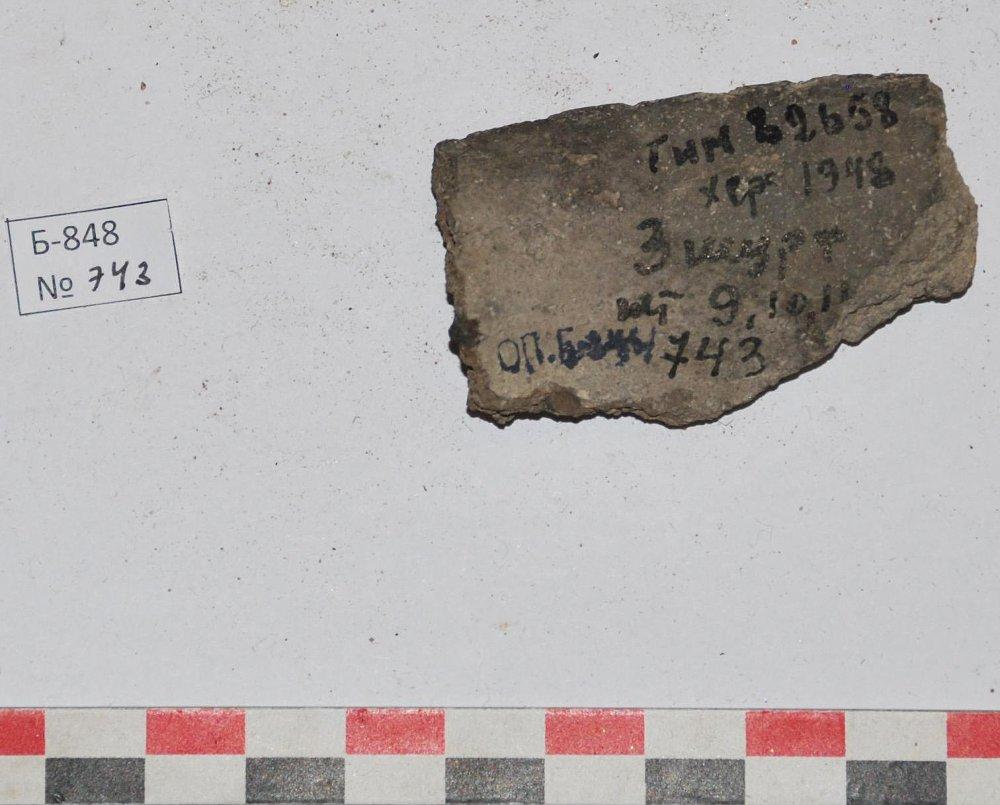 Б-848
№ 743
ГИМ 82658
хер 1948
З шурт
шт 9,10,11
ОП.Б- /743